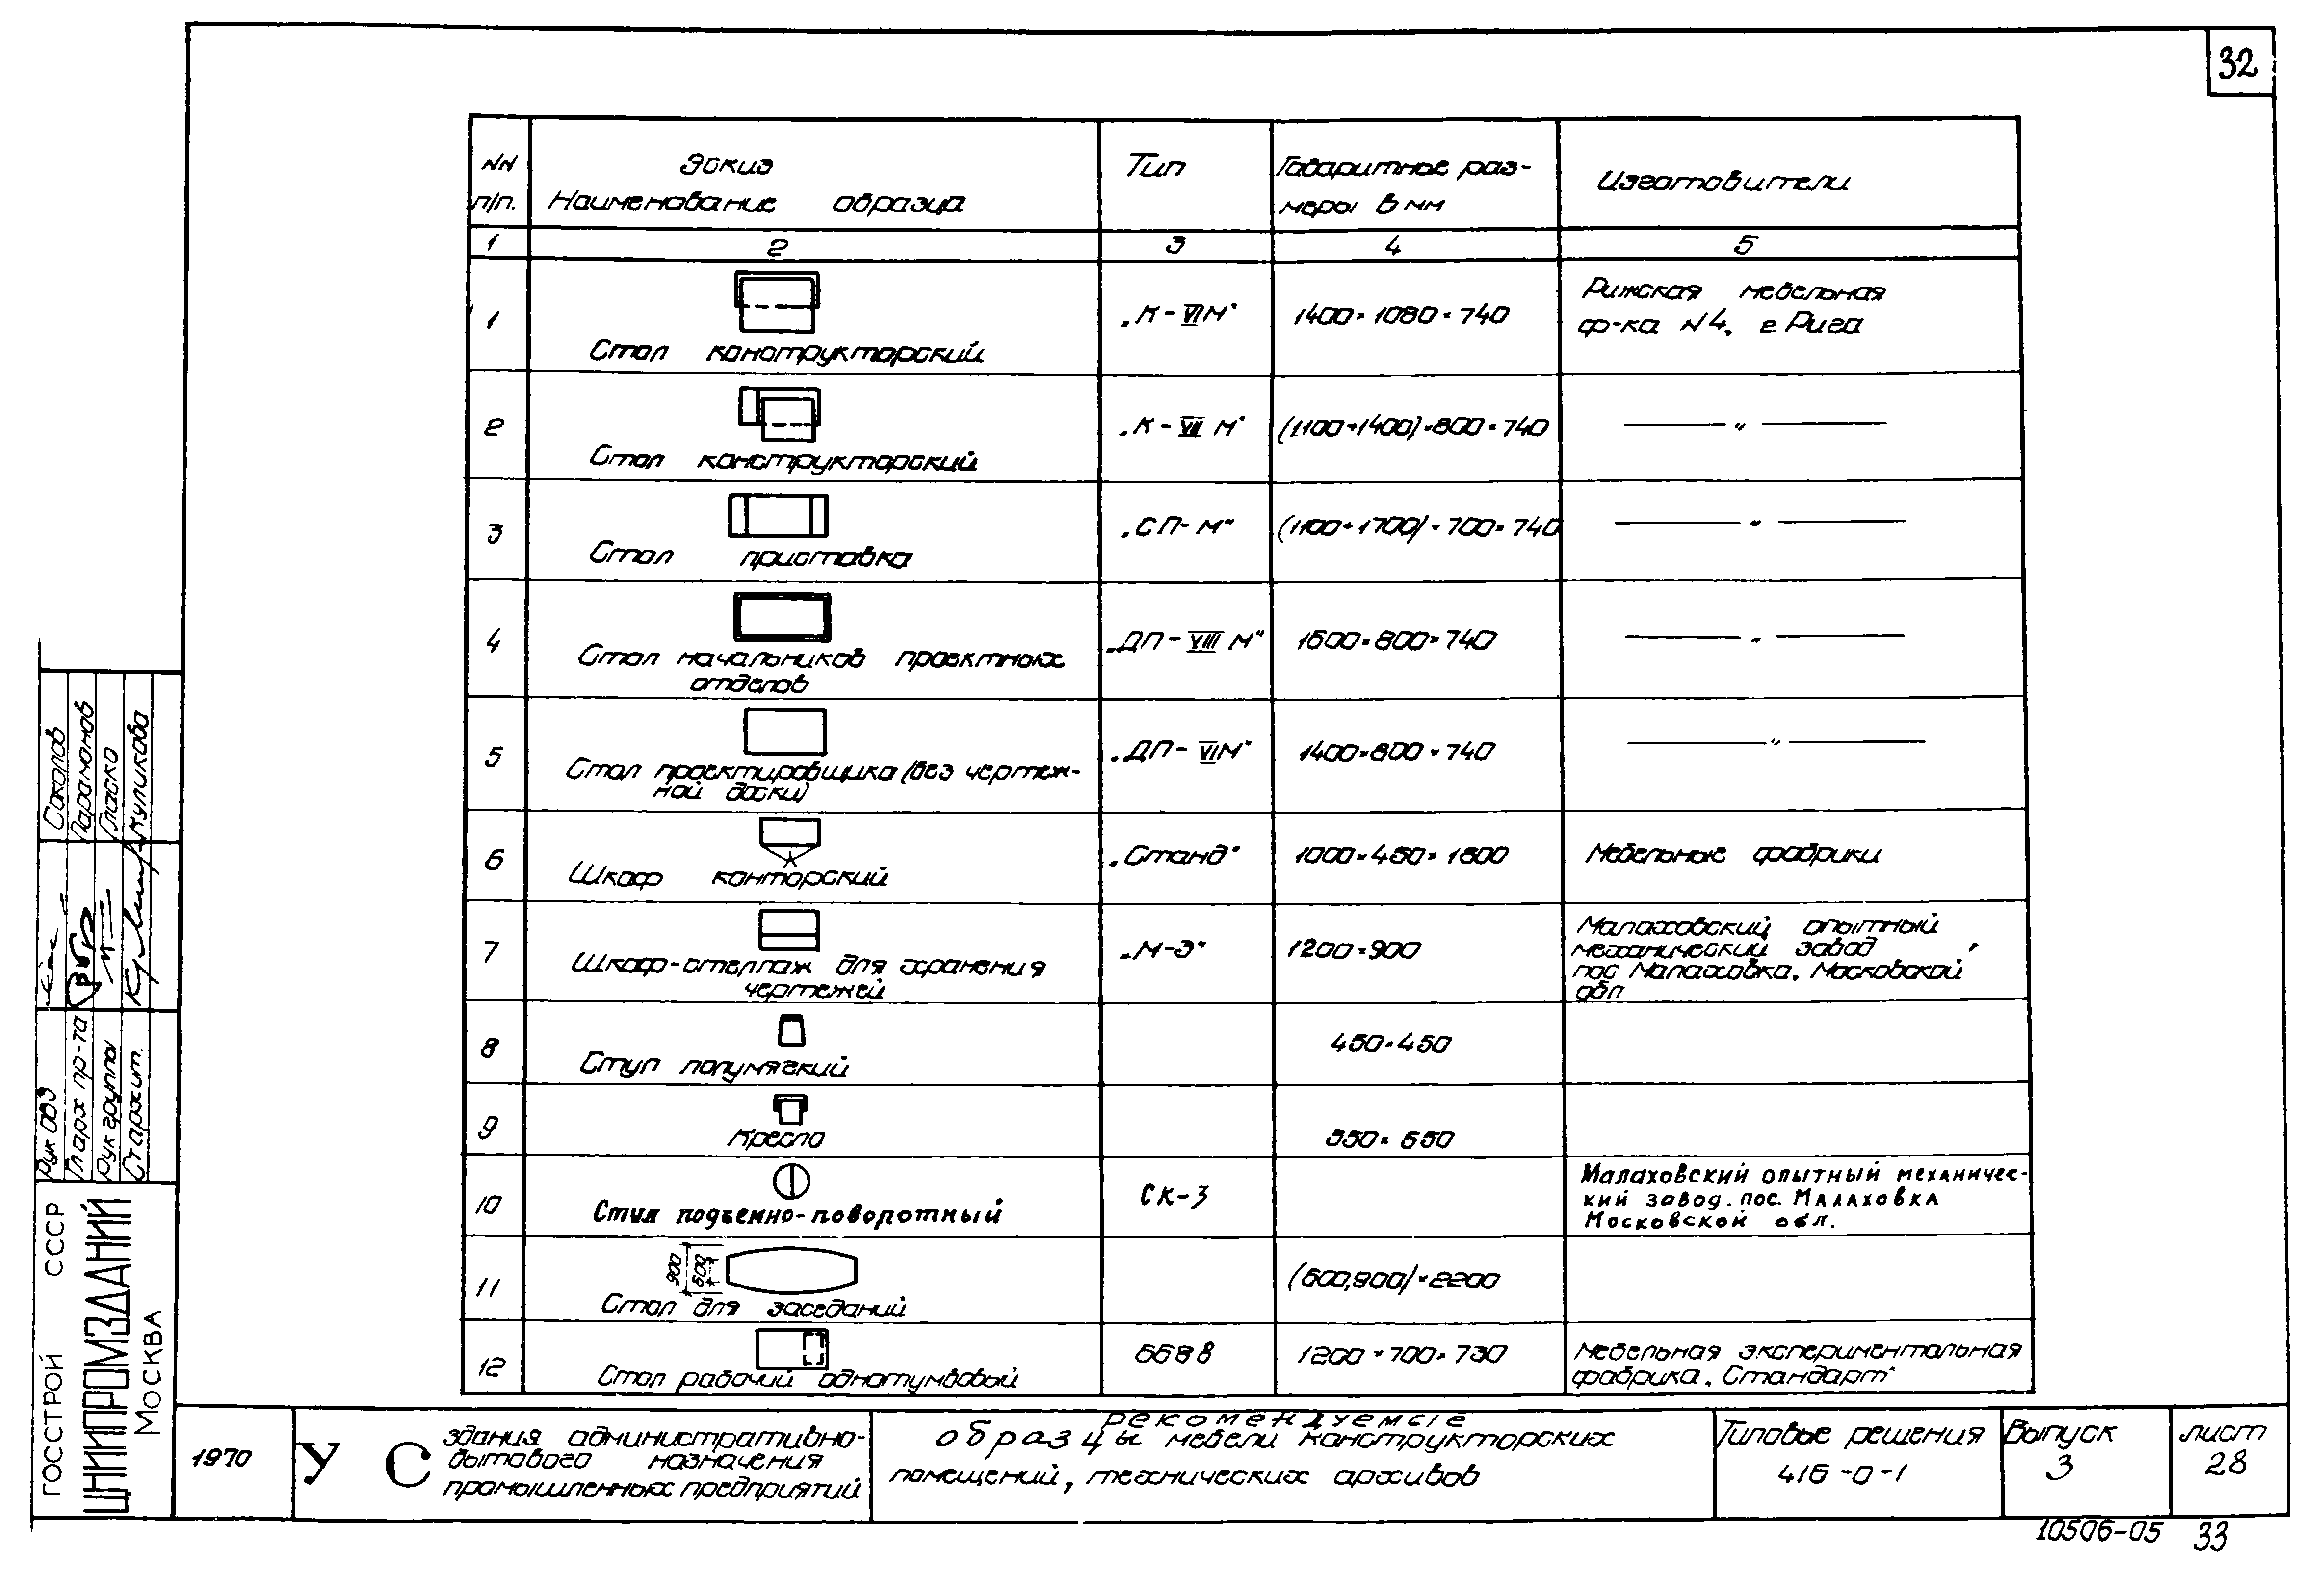 32
NN
п/п.
Эскиз
Наименование образца
Тип
Габаритные раз-
меры в мм
Изготовители
1 2 3 4 5
1
Стол конструкторский
„К-VIМ"
1400×1080×740
Рижская мебельная
ф-ка N4, г Рига
2
Стол конструкторский
„К-VII М"
(1100+1400)×800×740
— " —
3
Стол приставка
„СП-М"
(1100+1700)×700×740
— " —
4
Стол начальников проектных
отделов
„ДП-VIII М"
1600×800×740
— " —
5
Стол проектировщика (без чертеж-
ной доски)
„ДП-VIМ"
1400×800×740
— " —
6
Шкаф конторский
„Станд"
1000×450×1800
Мебельные фабрики
7
Шкаф-стеллаж для хранения
чертежей
„М-Э"
1200×900
Малаховский опытный
механический завод,
пос Малаховка, Московской
обл
8
Стул полумягкий
450×450
9
Кресло
550×650
10
Стул подъемно-поворотный
СК-3
Малаховский опытный механичес-
кий завод. пос. Малаховка
Московской обл.
11
900
600
Стол для заседаний
(600,900)×2200
12
Стол рабочий однотумбовый
1200×700×730
Мебельная экспериментальная
фабрика „Стандарт"
Соколов
Парамонов
Гласко
Куликова
Рук ОВЭ
Гл арх пр-та
Рук группы
Ст архит.
ГОССТРОЙ СССР
ЦНИИПРОМЗДАНИЙ
МОСКВА
1970
У С
здания административно-
бытового назначения
промышленных предприятий
рекомендуемые
образцы мебели конструкторских
помещений, технических архивов
Типовые решения
416-0-1
Выпуск
3
лист
28
10506-05 33